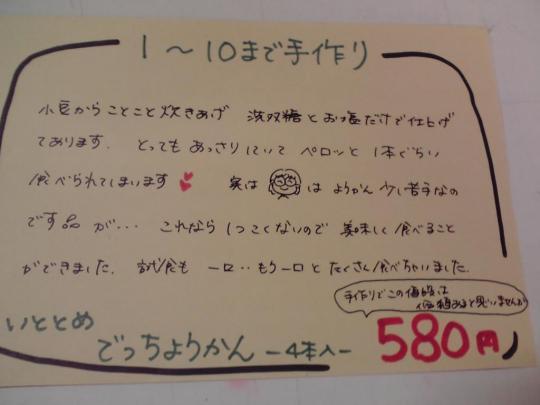 1〜10まで手作り
小豆からことこと炊きあげ 洗双糖とお塩だけで仕上げ
てあります. とってもあっさりしていて ペロッと 1本ぐらい
食べられてしまいます 実は は ようかん 少し苦手なの
ですが… これなら しつこくないので 美味しく食べること
ができました. 試食も 一口‥もう一口と たくさん食べちゃいました.
手作りでこの価格は
価値あると思いませんか
いととめ
でっちようかん -4本入-
580円